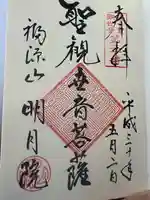 奉拝
平成三十年
五月二日
聖観世音菩薩
福源山
明月院